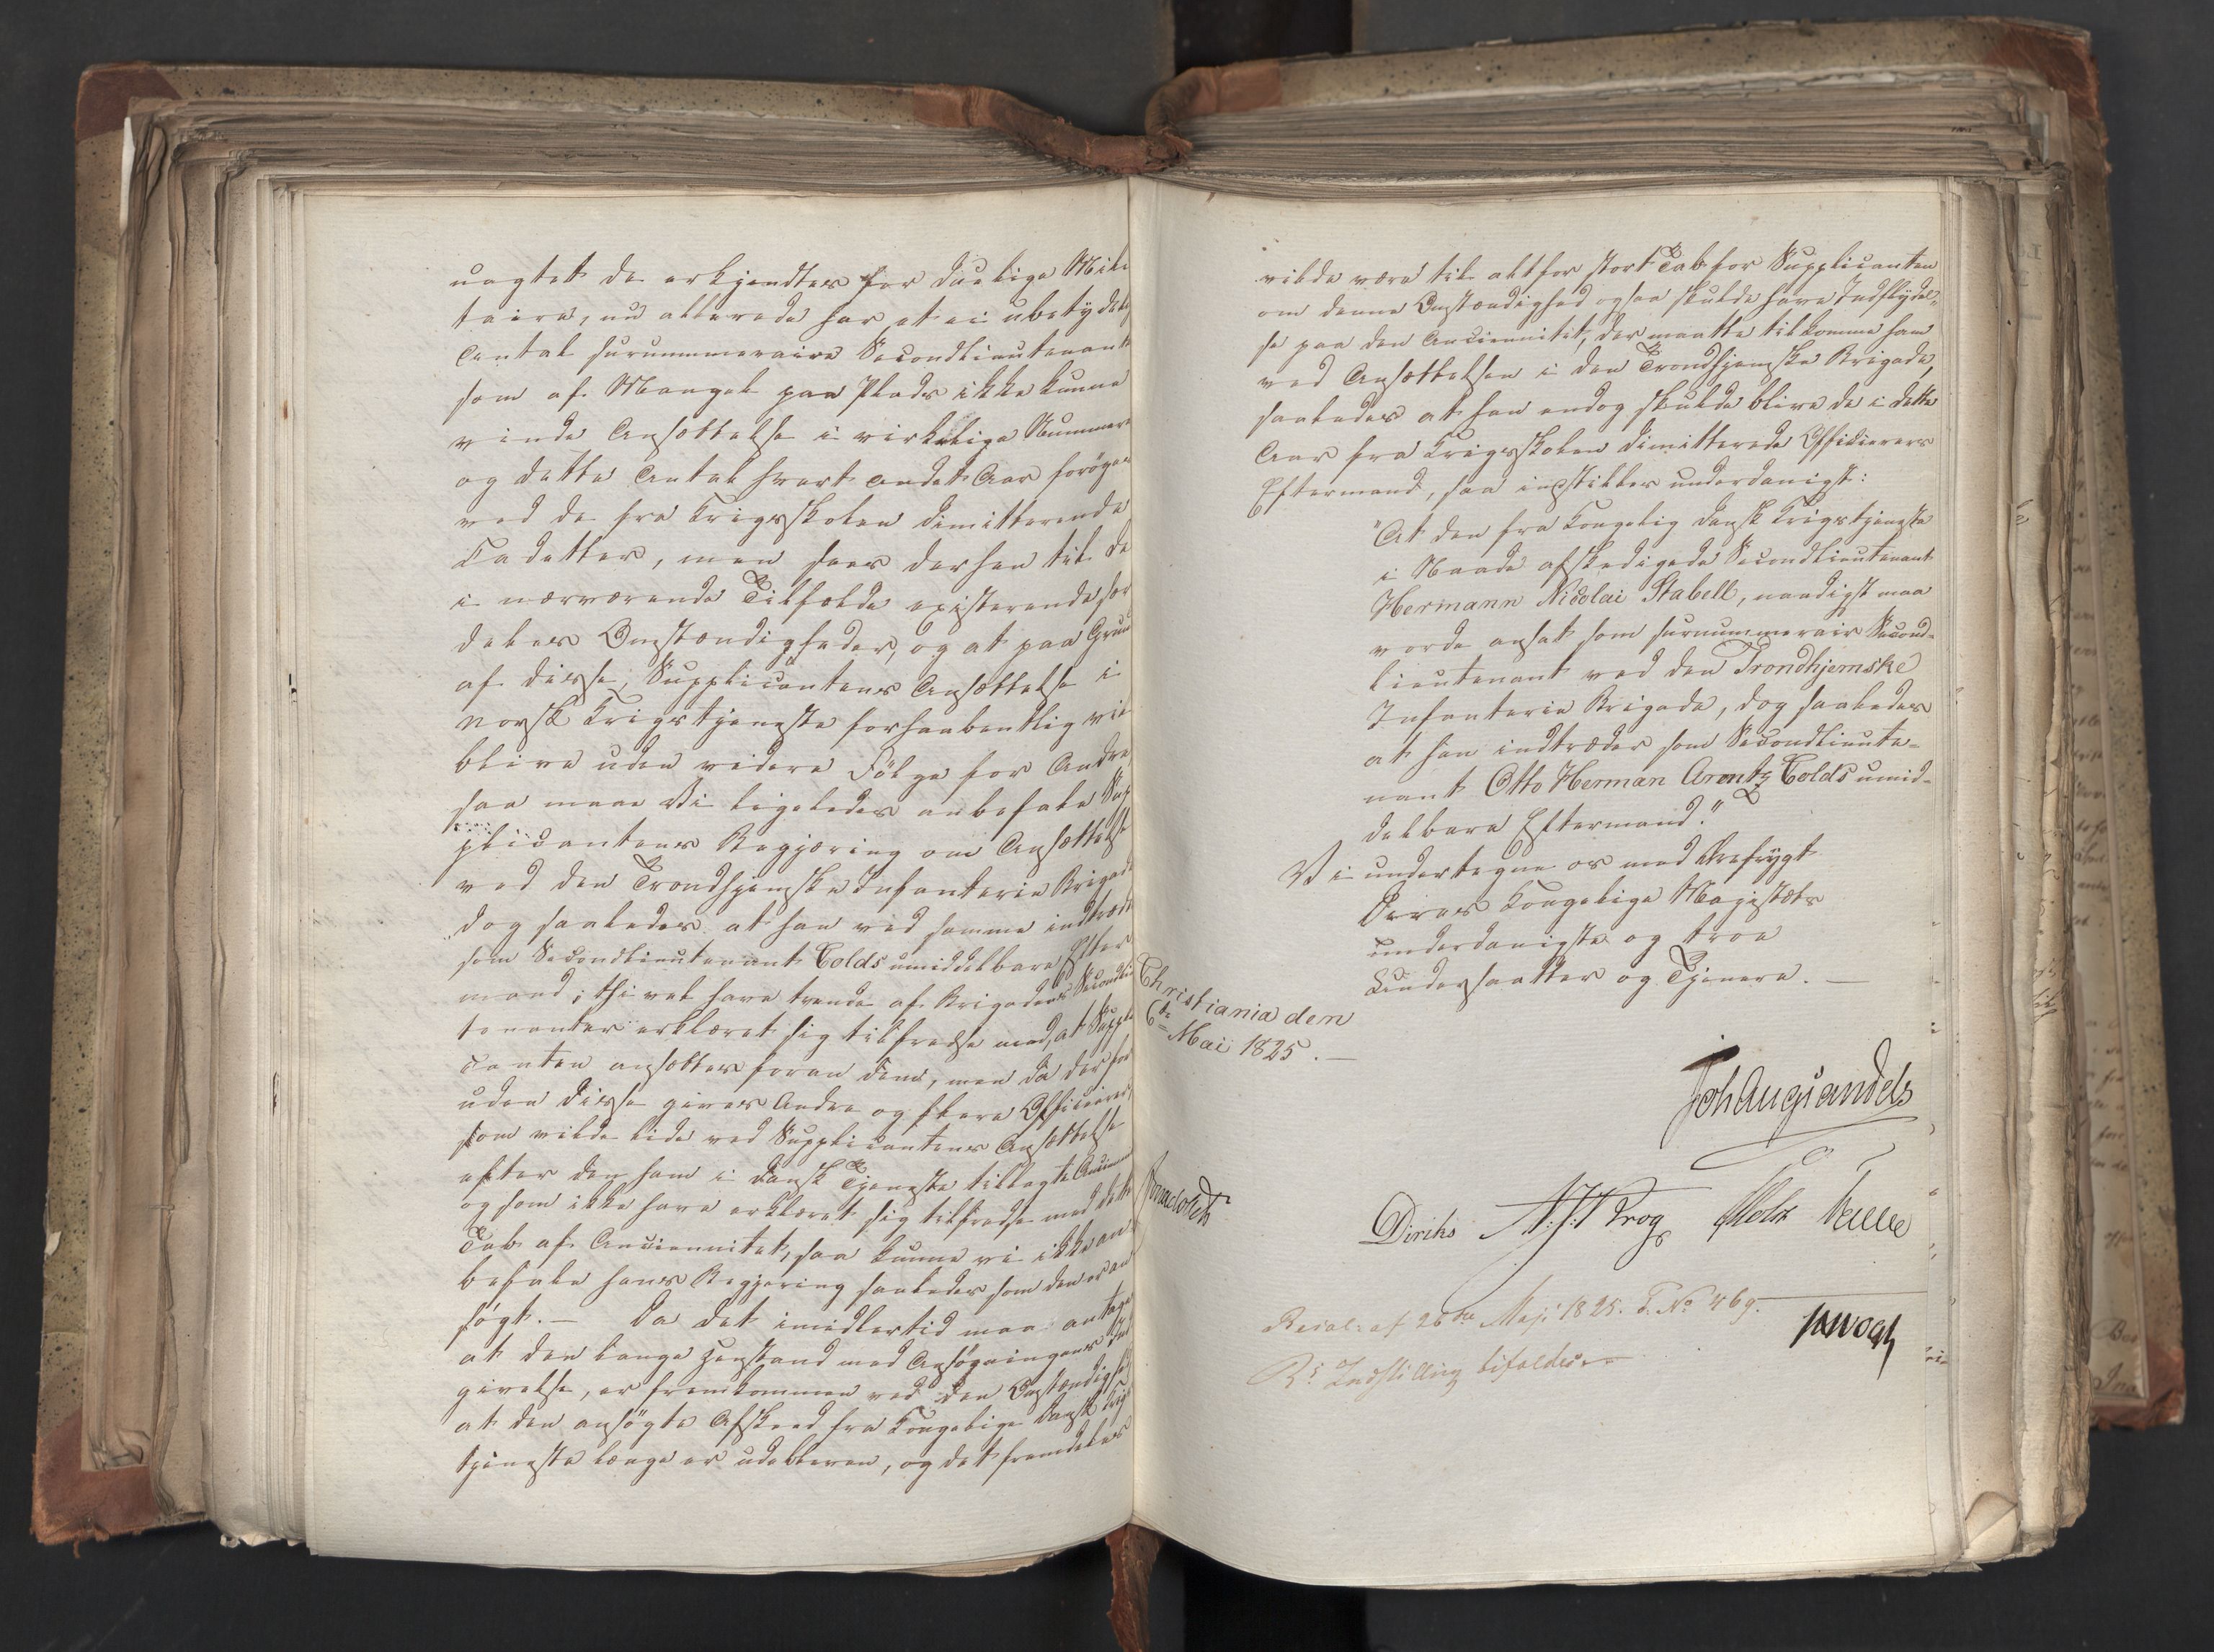 uagtet de erkjendtes for duelige Mili
taire, nu allerede har et ei ubetydelig
Antal surnummeraire Secondlieutenanter
som af Mangel paa Plads ikke kunne
vinde Ansættelse i virkelige Nummere
og dette Antal hvert andet Aar forøges
ved de fra Krigsskolen dimitterende
Cadetter, men sees derhen til de
i nærværende Tilfælde existerende sær
deles Omstændigheder, og at paa Grund
af disse, Supplicantens Ansættelse i
norsk Krigstjeneste forhaabentlig vil
blive uden videre Følge for Andre,
saa maae Vi ligeledes anbefale Sup
plicantens Begjæring om Ansættelse
ved den Trondhjemske Infanterie Brigade
dog saaledes at han ved samme indtræder
som Secondlieutenant Colds umiddelbare Efter
mand; thi vel have trende af Brigadens Secondlieu
tenanter erklæret sig tilfredse med, at Suppli
canten ansættes foran dem, men da der for
uden disse gives Andre og flere Officierer,
som vilde lide ved Supplicantens Ansættelse
efter den ham i dansk Tjeneste tillagte Anciennitet
og som ikke have erklæret sig tilfredse med dette
Tab af Anciennitet, saa kunne vi ikke an
befale hans Begjæring saaledes som den er an
søgt. — Da det imidlertid maa antages
at den lange Henstand med Ansøgningens Ind
givelse, er fremkommen ved den Omstændighed
at den ansøgte Afskeed fra Kongelig Dansk Krigs
tjeneste længe er udebleven, og det fremdeles
vilde være til altfor stort Tab for Supplicanten
om denne Omstændighed ogsaa skulde have Indflydel-
se paa den Anciennitet, der maatte tilkomme ham
ved Ansættelsen i den Trondhjemske Brigade,
saaledes at han endog skulde blive de i dette
Aar fra Krigsskolen dimitterede Officierers
Eftermand, saa indstilles underdanigst:
"At den fra Kongelig dansk Krigstjeneste
i Naade afskedigede Secondlieutenant
Hermann Nicolai Stabell, naadigst maa
vorde ansat som surnummerair Second-
lieutenant ved den Trondhjemske
Infanterie Brigade, dog saaledes
at han indtræder som Secondlieute-
nant Otto Herman Arentz Colds umid-
delbare Eftermand."
Vi undertegne os med Ærefrygt
Deres Kongelige Majestæts
underdanigste og troe
Undersaatter og Tjenere. —
Christiania den
6te Mai 1825. —
Joh Aug Sandels
Diriks A. J. Krog Motzfeldt
Resol: af 26de Maji 1825. P. No 469.
JHVogt
Rs Indstilling bifaldes